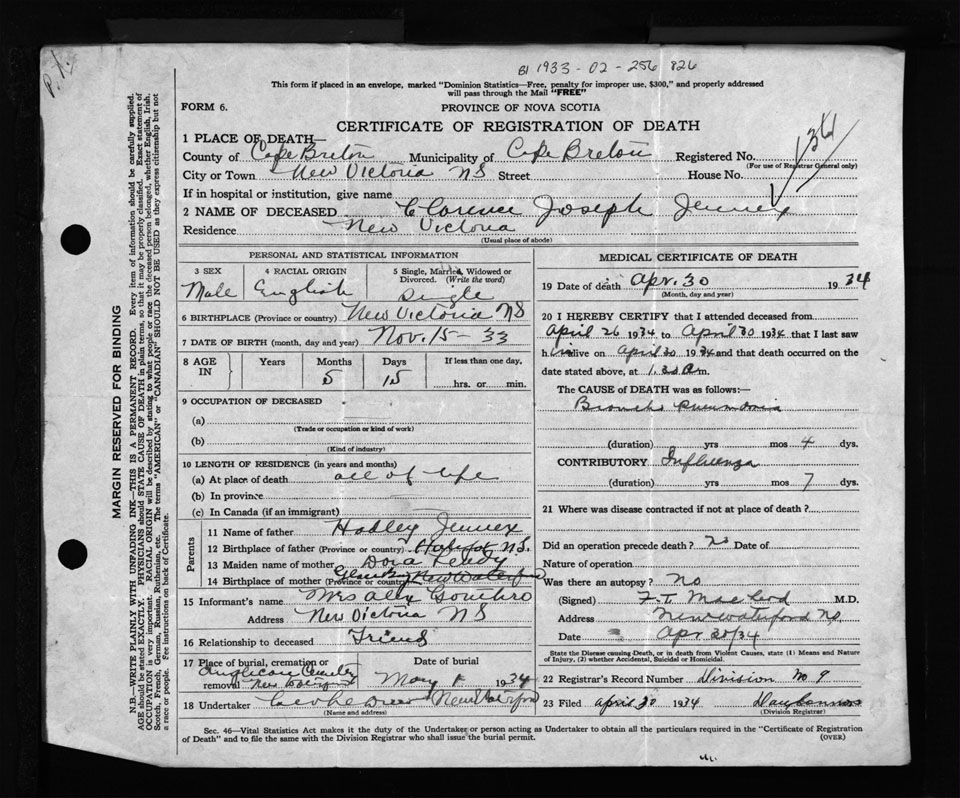 P.X.
BI 1933-02-256 826
This form if placed in an envelope, marked "Dominion Statistics—Free, penalty for improper use, $300," and properly addressed
will pass through the Mail "FREE"
FORM 6.
PROVINCE OF NOVA SCOTIA
CERTIFICATE OF REGISTRATION OF DEATH
1 PLACE OF DEATH—
County of Cape Breton Municipality of Cape Breton Registered No.
(For use of Registrar General only)
City or Town New Victoria NS Street House No.
If in hospital or institution, give name
2 NAME OF DECEASED Clarence Joseph Jennex
Residence New Victoria
(Usual place of abode)
MARGIN RESERVED FOR BINDING
N.B.—WRITE PLAINLY WITH UNFADING INK—THIS IS A PERMANENT RECORD. Every item of information should be carefully supplied.
AGE should be stated EXACTLY. PHYSICIANS should STATE CAUSE OF DEATH in plain terms, so that it may be properly classified. Exact statement of
OCCUPATION is very important. RACIAL ORIGIN will be described by stating to what people or race the deceased person belonged, whether English, Irish,
Scotch, French, German, Russian, Ruthenian, etc. The terms "AMERICAN" or "CANADIAN" SHOULD NOT BE USED as they express citizenship but not
a race or people. See instructions on back of Certificate.
PERSONAL AND STATISTICAL INFORMATION
3 SEX 4 RACIAL ORIGIN 5 Single, Married, Widowed or
Divorced. (Write the word)
Male English Single
6 BIRTHPLACE (Province or country) New Victoria NS
7 DATE OF BIRTH (month, day and year) Nov. 15-33
8 AGE IN Years Months Days If less than one day,
5 15 hrs. or min.
9 OCCUPATION OF DECEASED
(a)
(Trade or occupation or kind of work)
(b)
(Kind of industry)
10 LENGTH OF RESIDENCE (in years and months)
(a) At place of death all of life
(b) In province
(c) In Canada (if an immigrant)
Parents
11 Name of father Hadley Jennex
12 Birthplace of father (Province or country) NS.
13 Maiden name of mother Dora
14 Birthplace of mother (Province or country) New Waterford
15 Informant's name Mrs Alex
Address New Victoria NS
16 Relationship to deceased Friend
17 Place of burial, cremation or Date of burial
Anglican
removal May 1 1934
18 Undertaker
(Name and address)
MEDICAL CERTIFICATE OF DEATH
19 Date of death Apr. 30 1934
(Month, day and year)
20 I HEREBY CERTIFY that I attended deceased from
April 26 1934 to April 30 1934 that I last saw
him alive on April 30 1934 and that death occurred on the
date stated above, at 1.30 m.
The CAUSE OF DEATH was as follows:—
Broncho pneumonia
(duration) yrs mos 4 dys.
CONTRIBUTORY Influenza
(duration) yrs mos 7 dys.
21 Where was disease contracted if not at place of death?
Did an operation precede death? no Date of
Nature of operation
Was there an autopsy? no
(Signed) F.T. MacLeod M.D.
Address New Waterford NS.
Date Apr 30/34
State the Disease causing Death, or in death from Violent Causes, state (1) Means and
Nature of Injury, (2) whether Accidental, Suicidal or Homicidal.
22 Registrar's Record Number Division No 9
23 Filed April 30 1934
(Division Registrar)
Sec. 46—Vital Statistics Act makes it the duty of the Undertaker or person acting as Undertaker to obtain all the particulars required in the "Certificate of Registration
of Death" and to file the same with the Division Registrar who shall issue the burial permit.
(OVER)